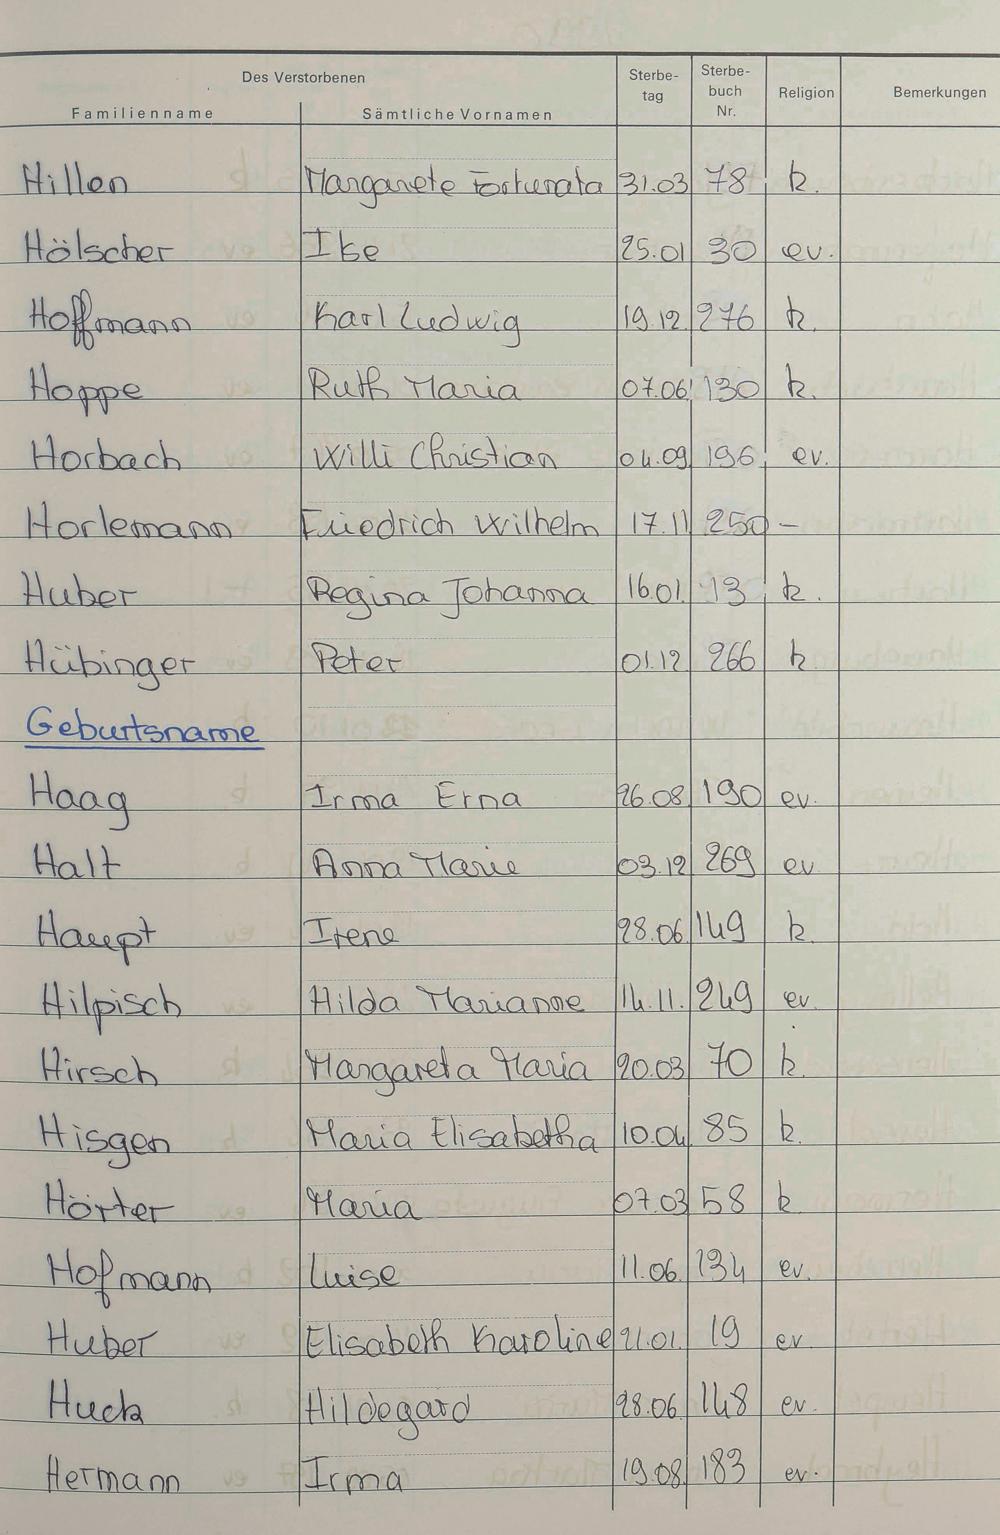 Des Verstorbenen
Familienname Sämtliche Vornamen Sterbe-tag Sterbe-buch Nr. Religion Bemerkungen
Hillen Margarete Fortunata 31.03 78 k.
Hölscher Ilse 25.01 30 ev.
Hoffmann Karl Ludwig 19.12. 276 k.
Hoppe Ruth Maria 07.06. 130 k.
Horbach Willi Christian 04.09. 196 ev.
Horlemann Friedrich Wilhelm 17.11 250 –
Huber Regina Johanna 16.01. 13 k.
Hübinger Peter 01.12 266 k
Geburtsname
Haag Irma Erna 26.08. 190 ev.
Halt Anna Marie 03.12 269 ev
Haupt Irene 28.06. 149 k.
Hilpisch Hilda Marianne 14.11. 249 ev.
Hirsch Margareta Maria 20.03 70 k.
Hisgen Maria Elisabetha 10.04 85 k.
Hörter Maria 07.03 58 k
Hofmann Luise 11.06. 134 ev.
Huber Elisabeth Karoline 21.01. 19 ev
Huck Hildegard 28.06. 148 ev.
Hermann Irma 19.08. 183 ev.